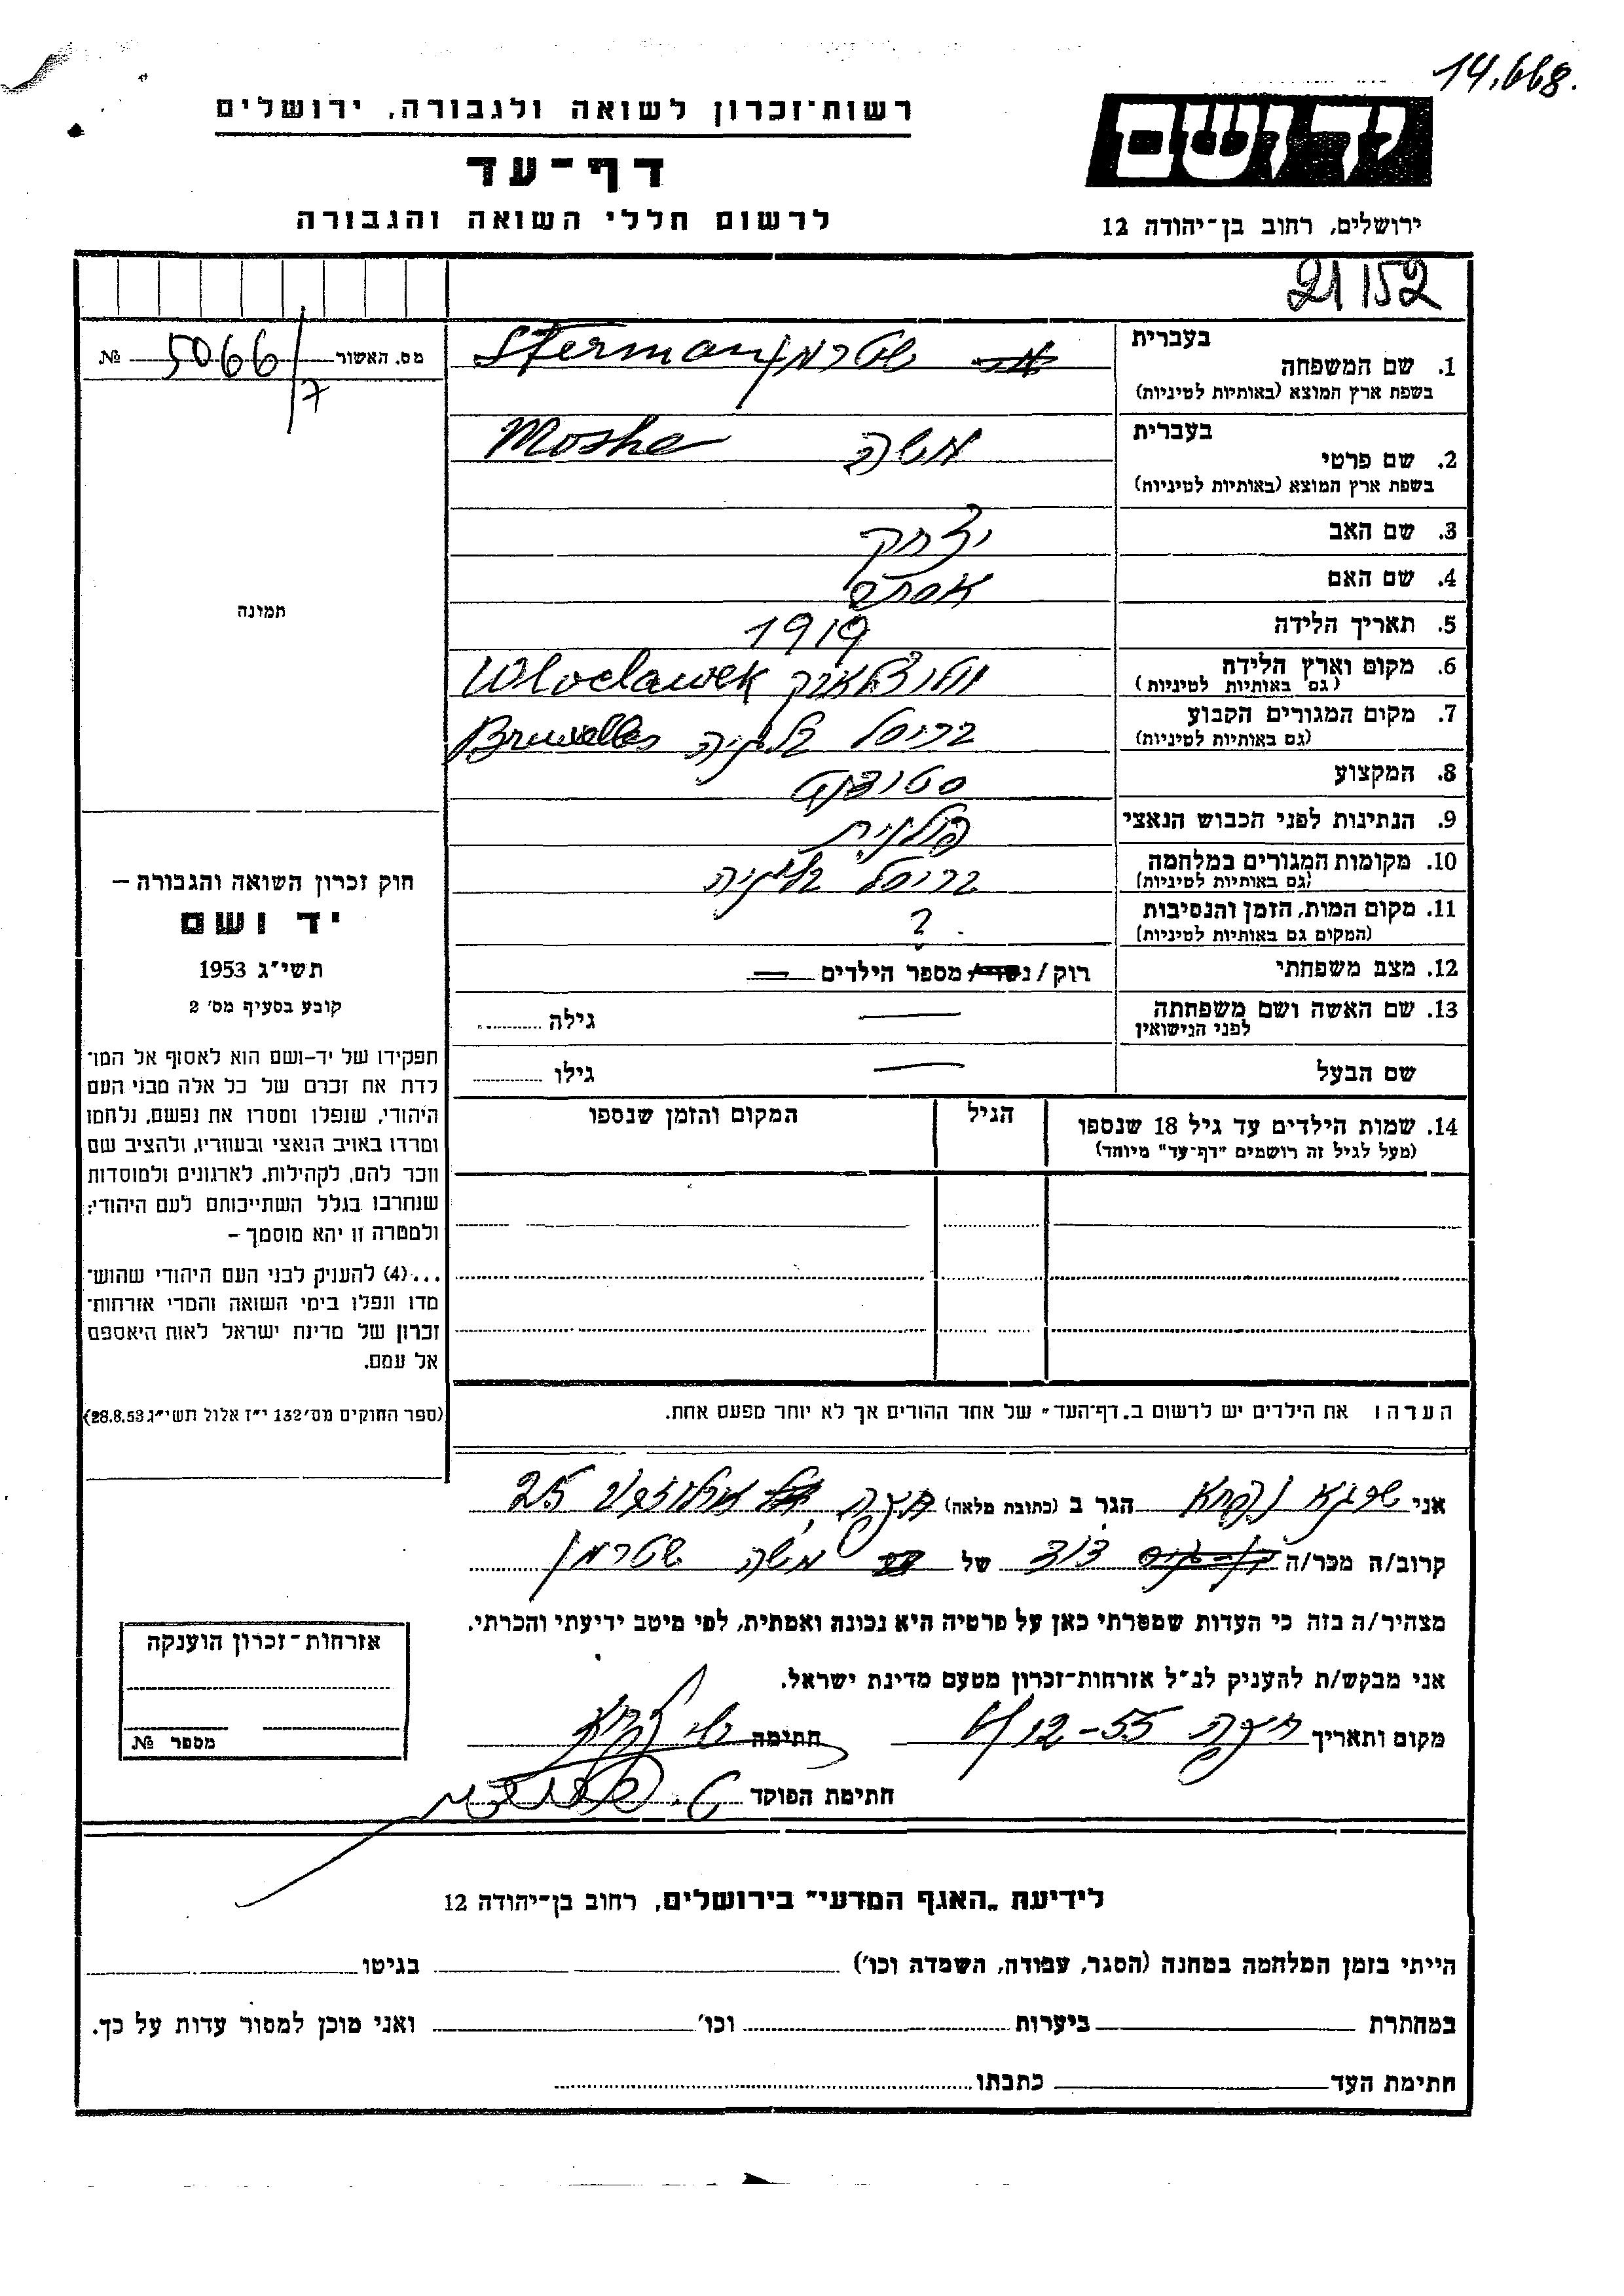 14.668.
רשות־זכרון לשואה ולגבורה, ירושלים
יד ושם
דף־עד
לרשום חללי השואה והגבורה
ירושלים, רחוב בן־יהודה 12
21152
בעברית
1. שם המשפחה שטרמן Sterman
בשפת ארץ המוצא (באותיות לטיניות)
מס. האשור 5066/7 №
בעברית
2. שם פרטי משה Moshe
בשפת ארץ המוצא (באותיות לטיניות)
3. שם האב יצחק
4. שם האם אסתר
5. תאריך הלידה 1919
6. מקום וארץ הלידה וולוצלאווק Wloclawek
(גם באותיות לטיניות)
7. מקום המגורים הקבוע בריסל בלגיה Bruxelles
(גם באותיות לטיניות)
8. המקצוע סטודנט
9. הנתינות לפני הכבוש הנאצי פולנית
10. מקומות המגורים במלחמה בריסל בלגיה
(גם באותיות לטיניות)
11. מקום המות, הזמן והנסיבות ?
(המקום גם באותיות לטיניות)
12. מצב משפחתי רוק/נשוי/מספר הילדים —
13. שם האשה ושם משפחתה — גילה
לפני הנישואין
שם הבעל — גילו
14. שמות הילדים עד גיל 18 שנספו הגיל המקום והזמן שנספו
(מעל לגיל זה רושמים "דף־עד" מיוחד)
תמונה
חוק זכרון השואה והגבורה –
יד ושם
תשי"ג 1953
קובע בסעיף מס' 2
תפקידו של יד-ושם הוא לאסוף אל המו־
לדת את זכרם של כל אלה מבני העם
היהודי, שנפלו ומסרו את נפשם, נלחמו
ומרדו באויב הנאצי ובעוזריו, ולהציב שם
וזכר להם, לקהילות, לארגונים ולמוסדות
שנחרבו בגלל השתייכותם לעם היהודי;
ולמטרה זו יהא מוסמך –
...(4) להעניק לבני העם היהודי שהוש־
מדו ונפלו בימי השואה והמרי אזרחות־
זכרון של מדינת ישראל לאות היאספם
אל עמם.
(ספר החוקים מס' 132 י"ז אלול תשי"ג 28.8.53)
הערה: את הילדים יש לרשום ב"דף־העד" של אחד ההורים אך לא יותר מפעם אחת.
אני הגר ב (כתובת מלאה) חיפה 25
קרוב/ה מכר/ה דוד של משה שטרמן
מצהיר/ה בזה כי העדות שמסרתי כאן על פרטיה היא נכונה ואמתית, לפי מיטב ידיעתי והכרתי.
אני מבקש/ת להעניק לנ"ל אזרחות־זכרון מטעם מדינת ישראל.
מקום ותאריך חיפה 4/12-55 חתימה
חתימת הפוקד
אזרחות־זכרון הוענקה
מספר №
לידיעת "האגף המדעי" בירושלים, רחוב בן־יהודה 12
הייתי בזמן המלחמה במחנה (הסגר, עבודה, השמדה וכו') בגיטו
במחתרת ביערות וכו' ואני מוכן למסור עדות על כך.
חתימת העד כתבתו